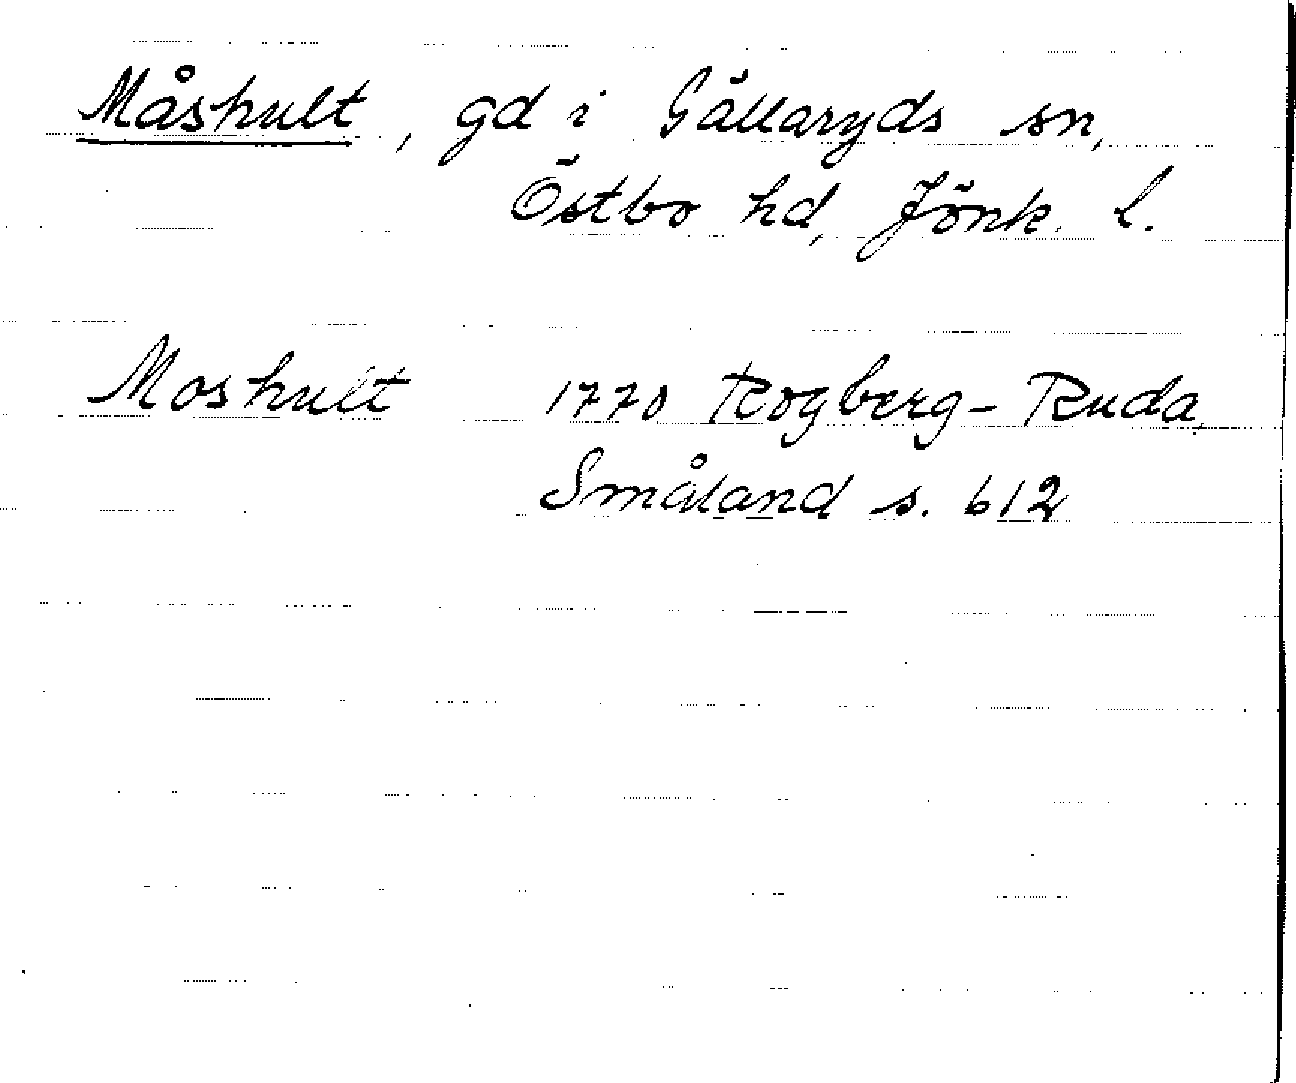 Måshult, gd i Gällaryds sn,
Östbo hd, Jönk. l.
Moshult 1770 Rogberg-Ruda,
Småland s. 612